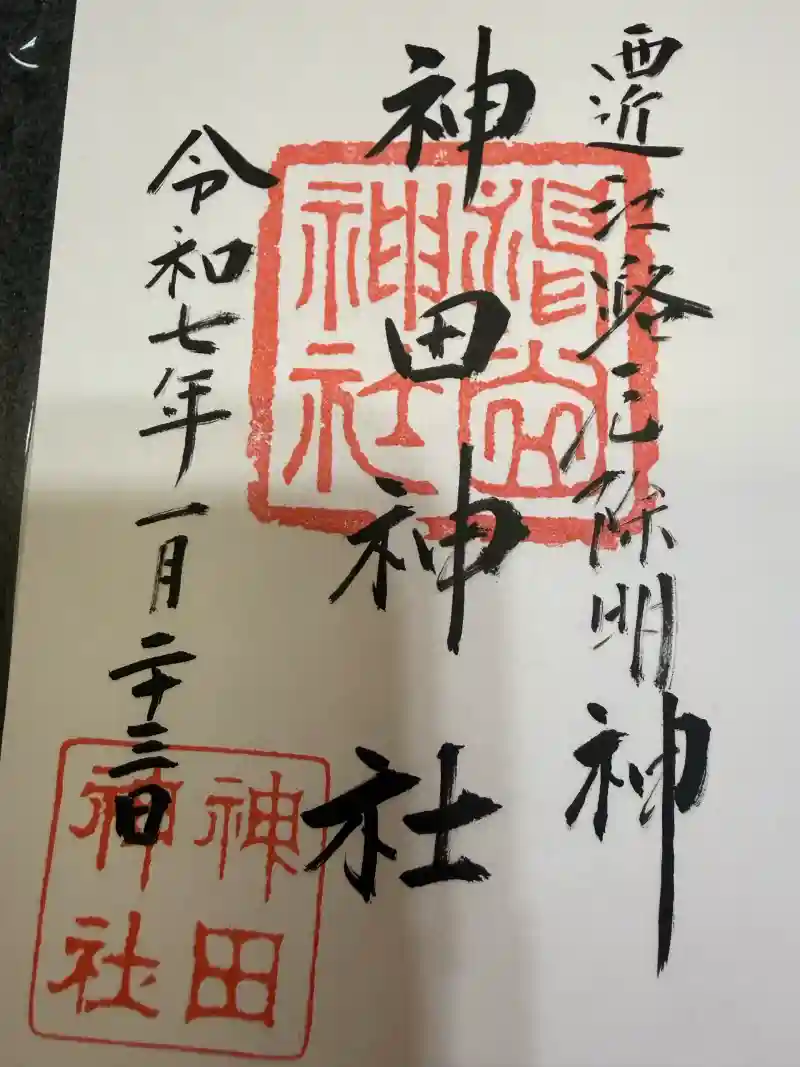 西近江路厄除明神
神田神社
神社
令和七年一月二十三日
神田
神社